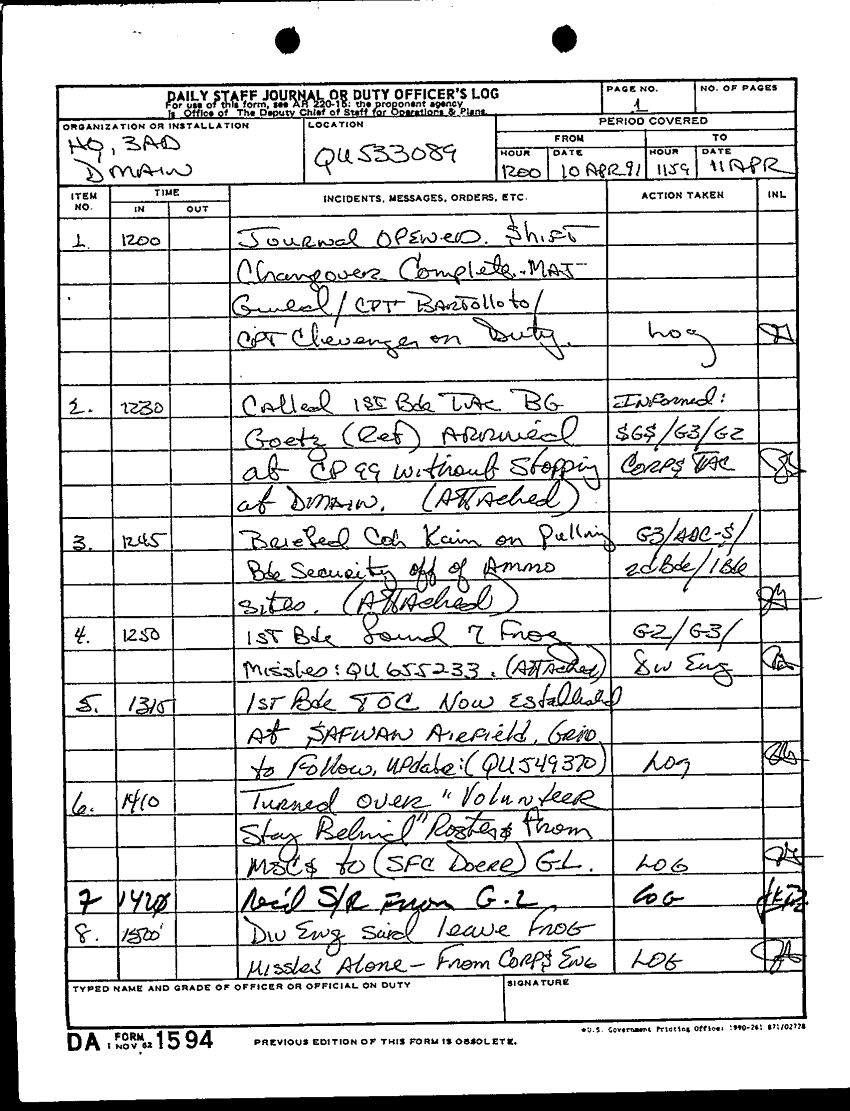 DAILY STAFF JOURNAL OR DUTY OFFICER'S LOG
For use of this form, see AR 220-15; the proponent agency
is Office of The Deputy Chief of Staff for Operations & Plans.
PAGE NO.
1
NO. OF PAGES
ORGANIZATION OR INSTALLATION
HQ, 3AD
DMAIN
LOCATION
QU533089
PERIOD COVERED
FROM
TO
HOUR
DATE
HOUR
DATE
1200
10 APR 91
1159
11 APR
ITEM NO.
TIME
IN
OUT
INCIDENTS, MESSAGES, ORDERS, ETC.
ACTION TAKEN
INL
1.
1200
Journal OPENED. Shift
Changeover Complete. MAJ
/ CPT BARTOLLOTO /
CPT Clevenger on Duty.
Log
2.
1230
Called 1ST Bde TAC BG
Goetz (Ret) Arrived
at CP 99 without Stopping
at DMAIN. (ATTAched)
Informed:
SGS/G3/G2
CORPS TAC
3.
1245
Briefed Kain on Pulling
Bde Security off of Ammo
Sites. (ATTAched)
G3/ADC-S/
2d Bde/1Bde
4.
1250
1ST Bde found 7 Frog
Missles: QU655233. (ATTAched)
G2/G3/
Div Eng
5.
1315
1ST Bde TOC Now Established
At SAFWAN Airfield, Grid
to Follow. Update: (QU549370)
Log
6.
1410
Turned over "Volunteer
Stay Behind" Rosters from
MSCs to (SFC Doere) G1.
LOG
7
1420
Rec'd S/R From G-2
LOG
8.
1500
Div Eng said leave FROG
Missles Alone - From CORPS ENG
LOG
TYPED NAME AND GRADE OF OFFICER OR OFFICIAL ON DUTY
SIGNATURE
DA FORM 1 NOV 62 1594
PREVIOUS EDITION OF THIS FORM IS OBSOLETE.
*U.S. Government Printing Office: 1990-261 871/02778